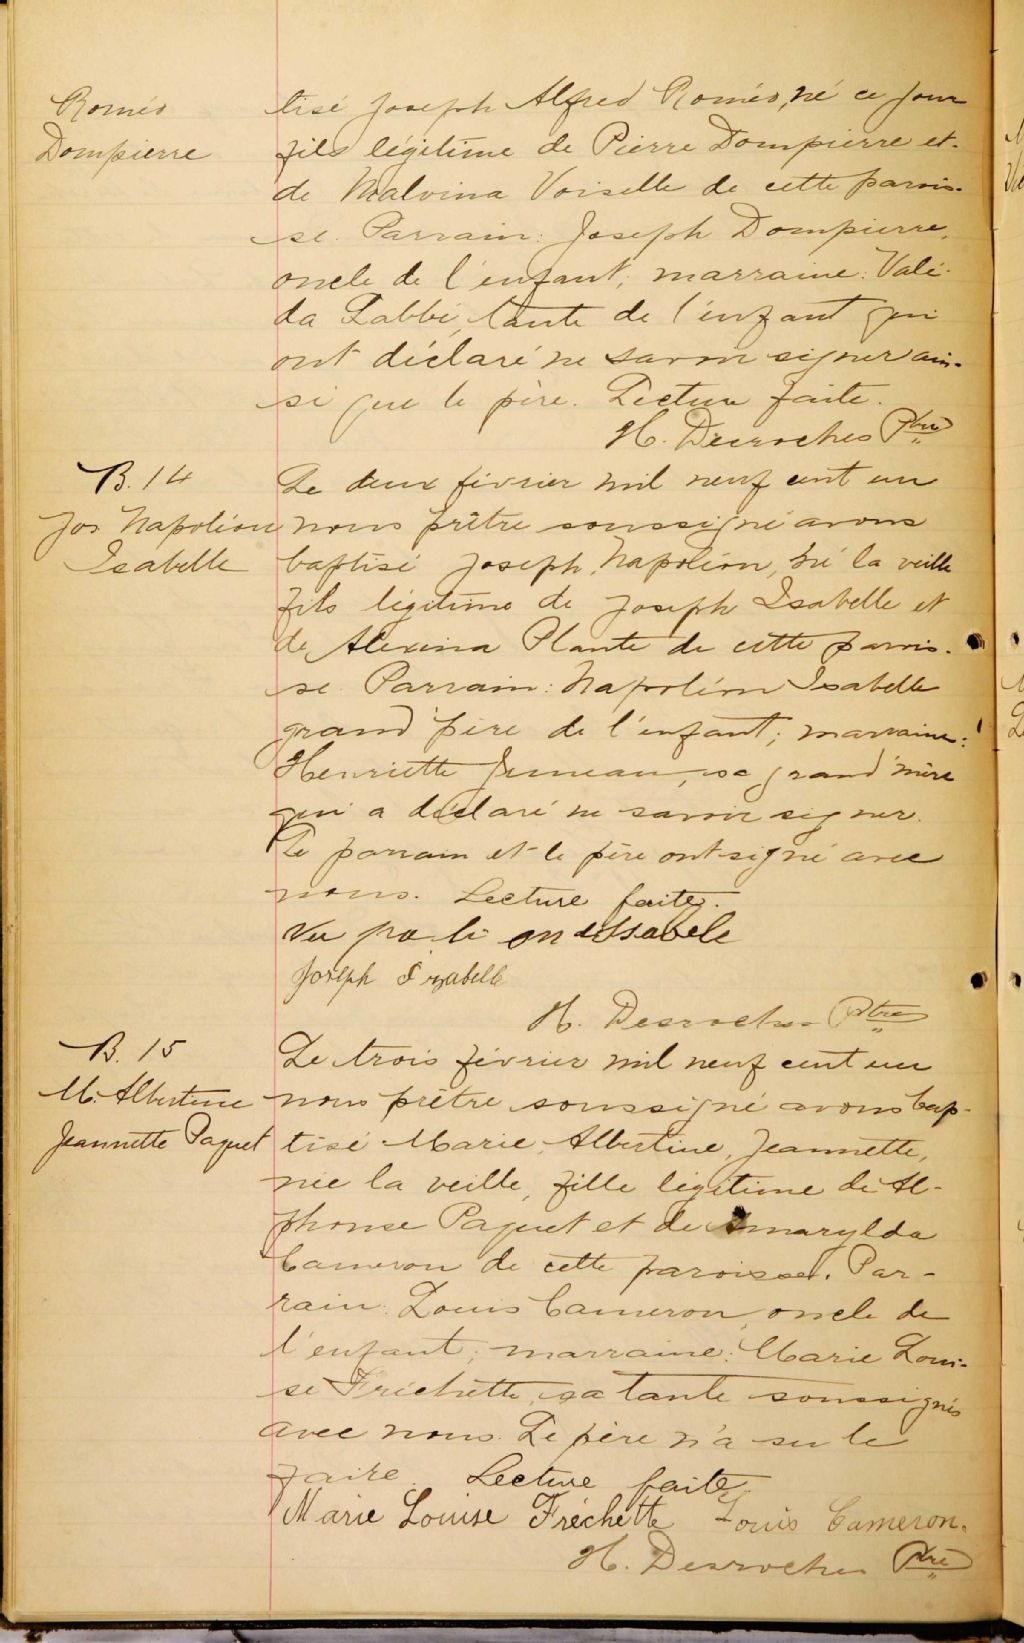 Roméo
Dompierre
tisé Joseph Alfred Roméo, né ce jour
fils légitime de Pierre Dompierre et
de Malvina Voiselle de cette parois-
se. Parrain: Joseph Dompierre,
oncle de l'enfant; marraine: Valé-
da Labbé, tante de l'enfant qui
ont déclaré ne savoir signer ain-
si que le père. Lecture faite.
H. Desroches Ptre
B. 14
Jos Napoléon
Isabelle
Le deux février mil neuf cent un
nous prêtre soussigné avons
baptisé Joseph, Napoléon, né la veille
fils légitime de Joseph Isabelle et
de Alexina Plante de cette parois-
se. Parrain: Napoléon Isabelle
grand'père de l'enfant; marraine:
Henriette Juneau, sa grand'mère
qui a déclaré ne savoir signer.
Le parrain et le père ont signé avec
nous. Lecture faite.
Joseph Izabelle
H. Desroches Ptre
B. 15
M. Albertine
Jeannette Paquet
Le trois février mil neuf cent un
nous prêtre soussigné avons bap-
tisé Marie, Albertine, Jeannette,
née la veille, fille légitime de Al-
phonse Paquet et de Amarylda
Cameron de cette paroisse. Par-
rain: Louis Cameron, oncle de
l'enfant; marraine: Marie Loui-
se Fréchette, sa tante soussignés
avec nous. Le père n'a su le
faire. Lecture faite.
Marie Louise Fréchette Louis Cameron.
H. Desroches Ptre